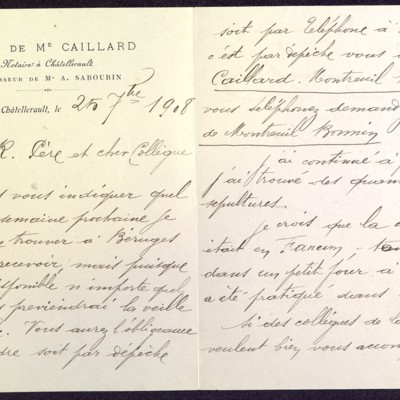 DE Mᴱ CAILLARD
Notaire à Châtellerault
SSEUR DE Mᴱ A. SABOURIN
Châtellerault, le 25 7bre 1908
R. Père et cher Collègue
s vous indiquer quel
semaine prochaine je
e trouver à Béruges
recevoir mais puisque
sponible n importe quel
s previendrai la veille
. Vous aurez l'obligeance
dre soit par dépêche
soit par téléphone à
c'est par dépêche vous
Caillard. Montreuil
vous téléphonez demand
de Montreuil Bonnin
J'ai continué à
j'ai trouvé des quan
sépultures.
Je crois que la
était en
dans un petit four à
a été pratiqué dans
si des collègues de la
veulent bien vous accom